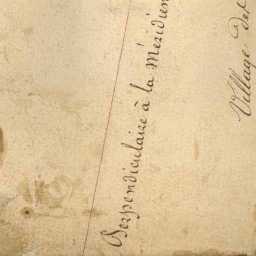 Perpendiculaire à la méridien
Village de